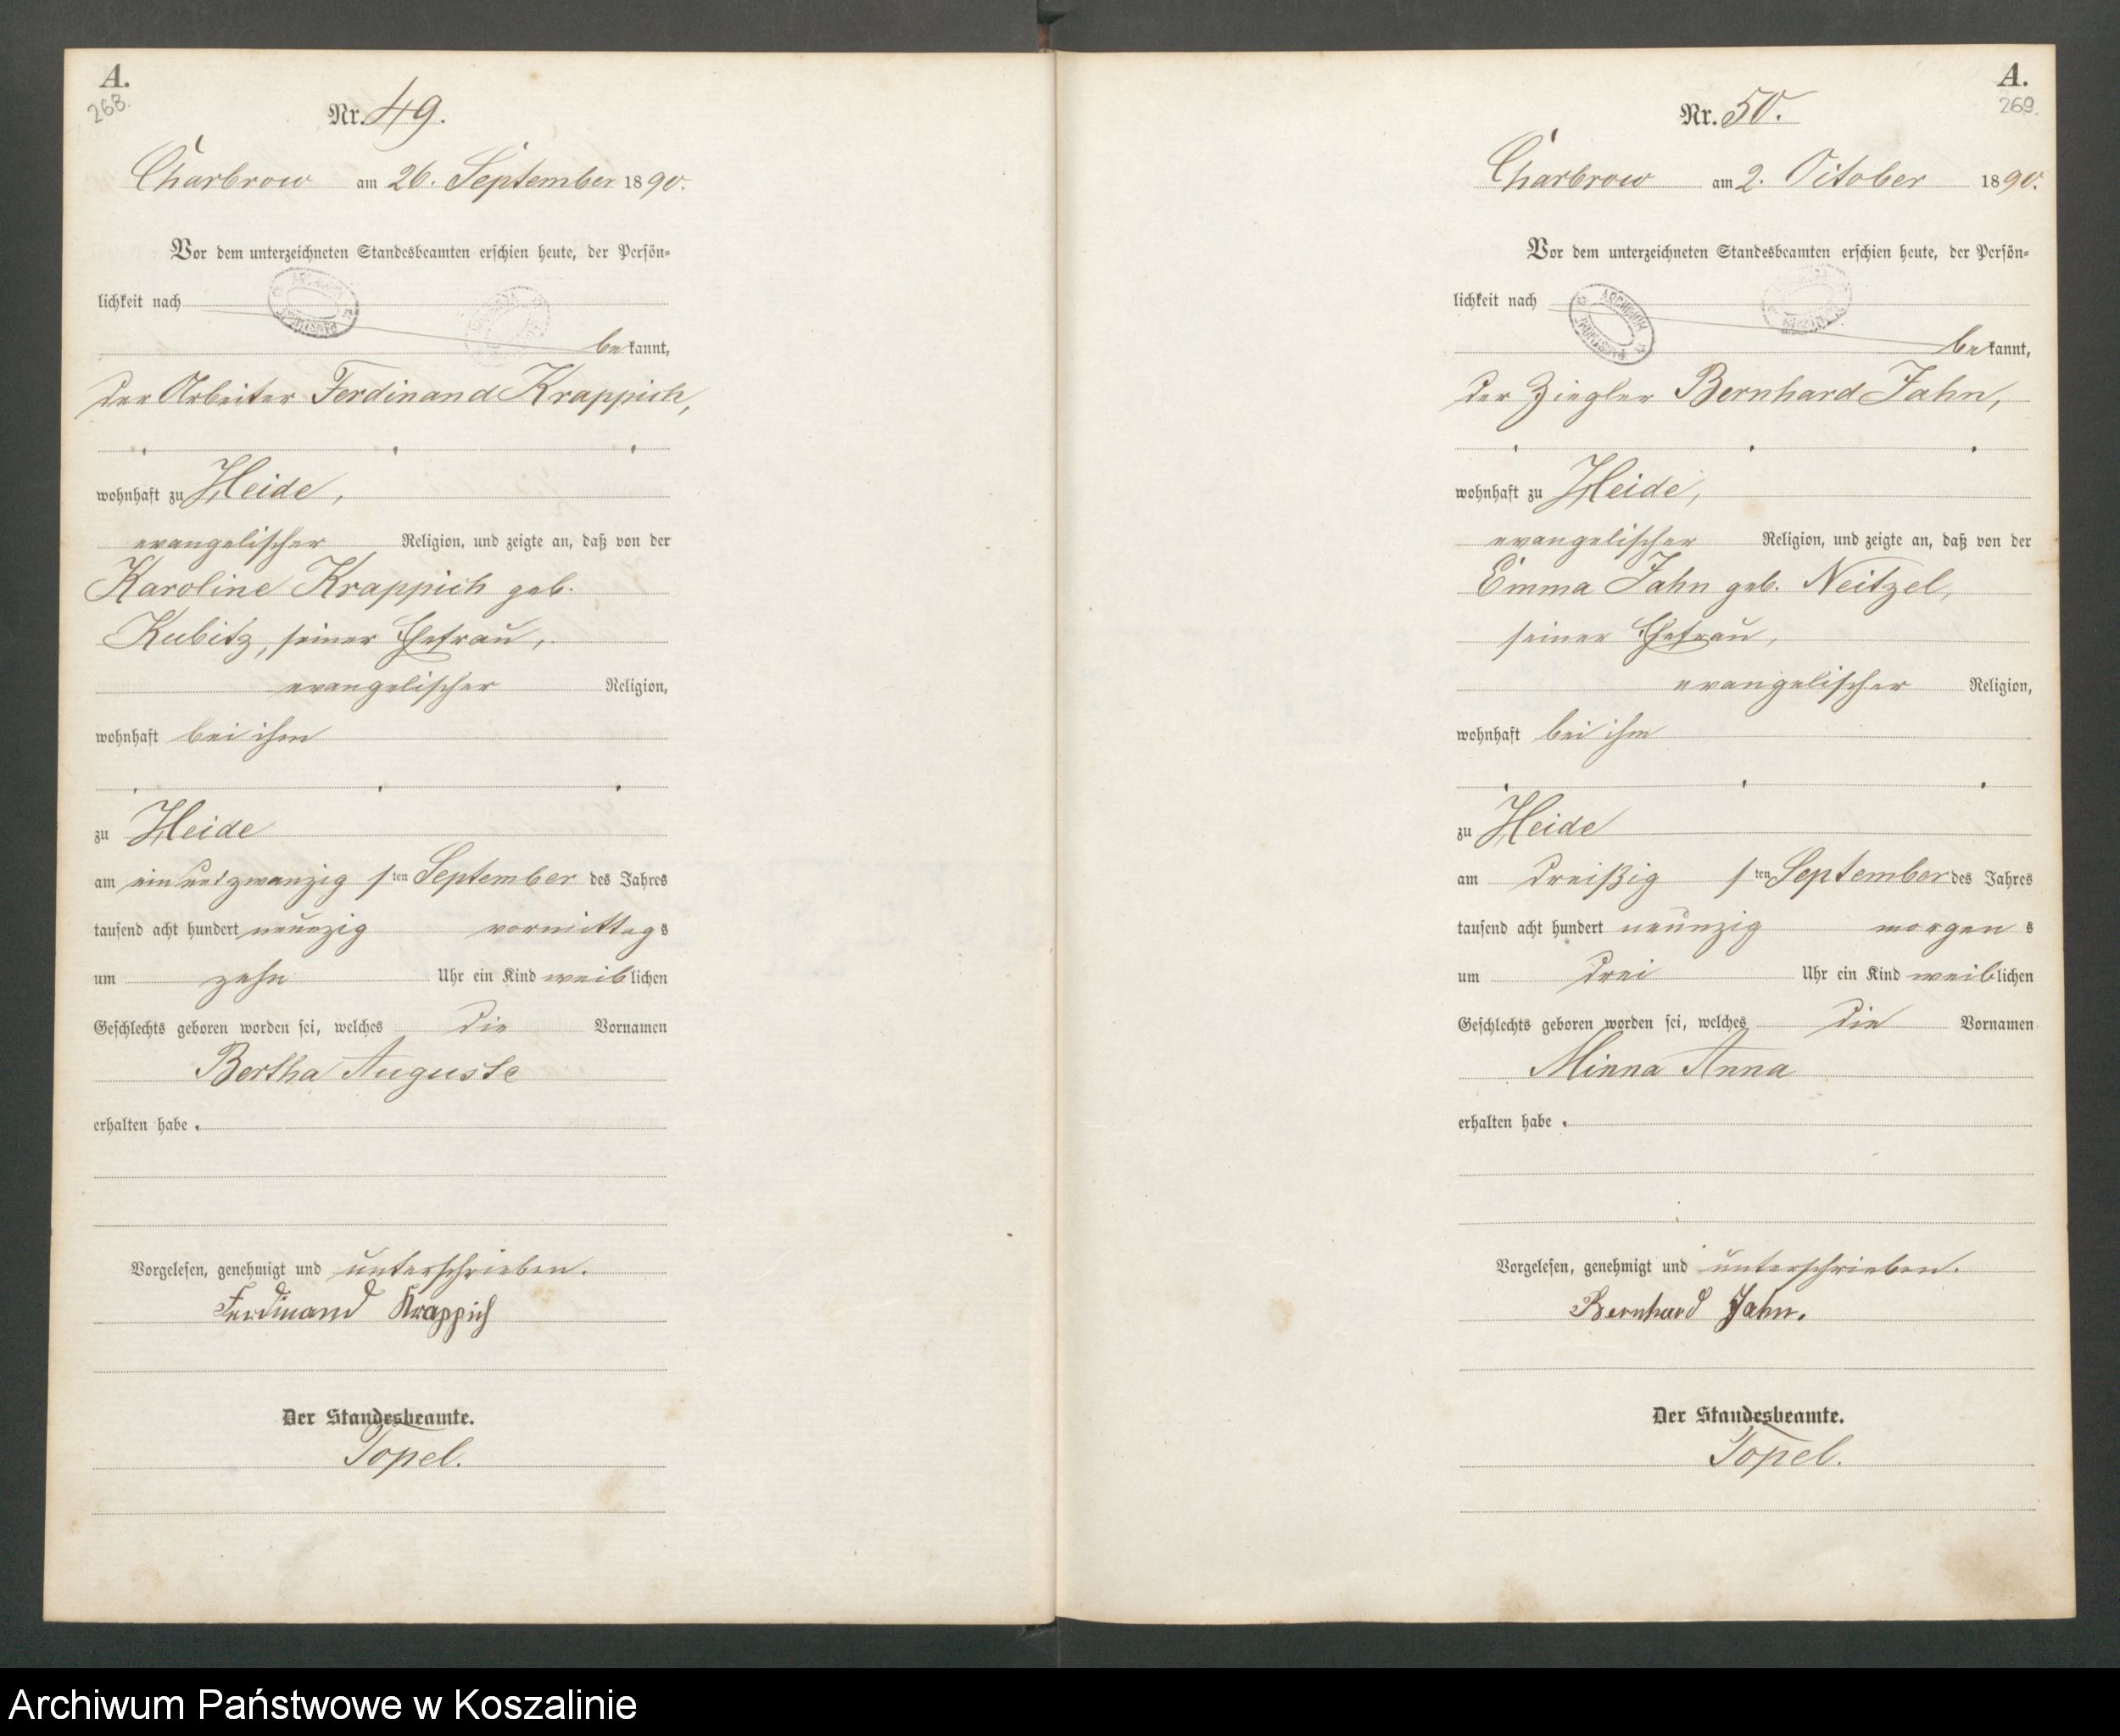 A.
268.
Nr. 49.
Charbrow am 26. September 1890.
Vor dem unterzeichneten Standesbeamten erschien heute, der Persön-
lichkeit nach
bekannt,
der Arbeiter Ferdinand Krappich,
wohnhaft zu Heide,
evangelischer Religion, und zeigte an, daß von der
Karoline Krappich geb.
Kubitz, seiner Ehefrau,
evangelischer Religion,
wohnhaft bei ihm
zu Heide
am ein und zwanzigsten September des Jahres
tausend acht hundert neunzig vormittags
um zehn Uhr ein Kind weiblichen
Geschlechts geboren worden sei, welches die Vornamen
Bertha Auguste
erhalten habe.
Vorgelesen, genehmigt und unterschrieben.
Ferdinand Krappich
Der Standesbeamte.
Topel.
A.
269.
Nr. 50.
Charbrow am 2. October 1890.
Vor dem unterzeichneten Standesbeamten erschien heute, der Persön-
lichkeit nach
ARCHIWUM
bekannt,
der Ziegler Bernhard Jahn,
wohnhaft zu Heide,
evangelischer Religion, und zeigte an, daß von der
Emma Jahn geb. Neitzel,
seiner Ehefrau,
evangelischer Religion,
wohnhaft bei ihm
zu Heide
am dreißigsten September des Jahres
tausend acht hundert neunzig morgens
um drei Uhr ein Kind weiblichen
Geschlechts geboren worden sei, welches die Vornamen
Minna Anna
erhalten habe.
Vorgelesen, genehmigt und unterschrieben.
Bernhard Jahn.
Der Standesbeamte.
Topel.
Archiwum Państwowe w Koszalinie